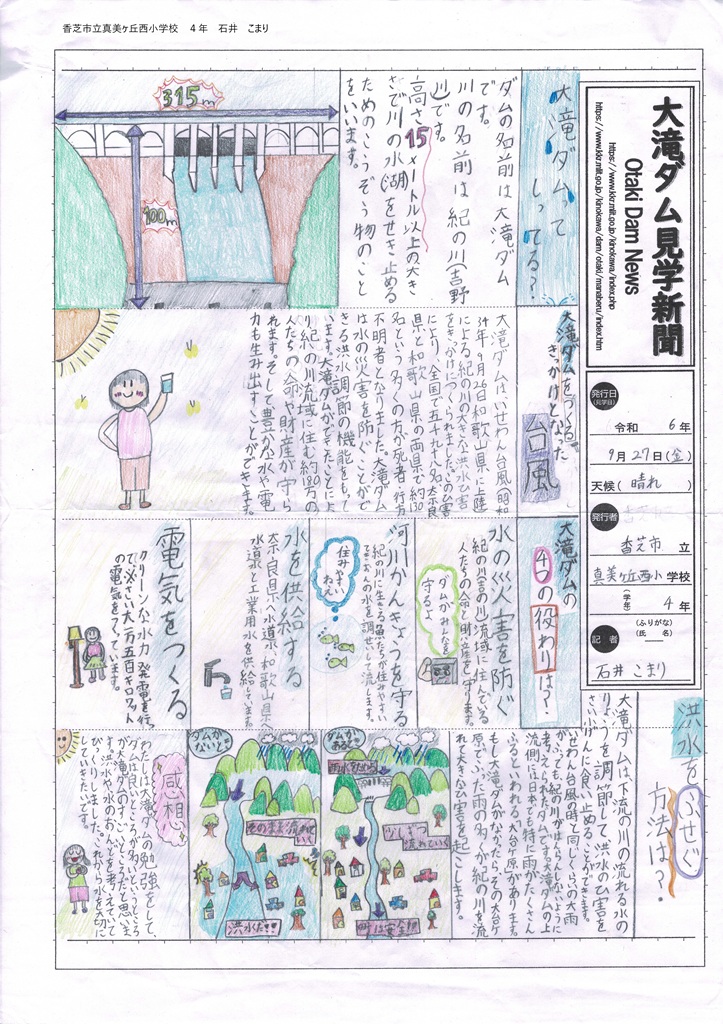 香芝市立真美ヶ丘西小学校　4年　石井　こまり
大滝ダム見学新聞
Otaki Dam News
https://www.kkr.mlit.go.jp/kinokawa/index.php
https://www.kkr.mlit.go.jp/kinokawa/dam/otaki/manaberu/index.htm
発行日
(見学日)
令和　6年
9月27日(金)
天候(晴れ)
発行者
香芝市 立
真美ヶ丘西小 学校
(学年) 4年
記者
(ふりがな)
(氏　名)
石井 こまり
大滝ダムって
しってる?
ダムの名前は大滝ダム
です。
川の名前は紀の川(吉野
川)です。
高さ15メートル以上の大き
さで川の水湖をせき止める
ためのこうぞう物のこと
をいいます。
315m
100m
大滝ダムをつくる
きっかけとなった
台風
大滝ダムは、いせわん台風(昭和
34年9月26日和歌山県に上陸)
による紀の川の大きな洪水ひ害
をきっかけにつくられました。このひ害
により、全国で五千九十八名、奈良
県と和歌山県の両県で約130
名という多くの方が死者・行方
不明者となりました。大滝ダム
は水の災害を防ぐことがで
きる洪水調節の機能をもって
います。大滝ダムができたことによ
り紀の川流域に住む約80万の
人たちの命や財産が守ら
れます。そして豊かな水や電
力も生み出すことができます。
大滝ダムの
4つの役わりは?
水の災害を防ぐ
紀の川(吉の川)流域に住んでいる
人たちの命と財産を守ります。
ダムがみんなを
守るよ
河川かんきょうを守る
紀の川に生きる魚たちが住みやすい
ようダムの水を調せつして流します。
住みやすい
ねぇ
水を供給する
奈良県へ水道水、和歌山県へ
水道と工業用水を供給してます。
電気をつくる
クリーンな水力発電を行っ
て、※さい大一万五百キロワット
の電気をつくっています。
洪水をふせぐ
方法は?
大滝ダムは、下流の川の流れる水の
りょうを調節して、洪水のひ害を
さい小げんに食い止めることができます。
いせわん台風の時と同じくらいの大雨
がふっても紀の川がはんらんしないように
考えられたダムです。大滝ダムの上
流側には日本でも特に雨がたくさん
ふるといわれる大台ケ原があります。
もし大滝ダムがなかったら、その大台ケ
原でふった雨の多くが紀の川を流
れて大きなひ害を起こします。
ダムが
あると
雨水をためる
少しずつ
流れていく
町は安全!!
ダムが
ないと
そのまま流れて
いく
洪水だ!!
感想
わたしは大滝ダムの勉強をして、
ダムは良いところが多いというところ
が大滝ダムのすごいところだと思いま
す。洪水や水のおんどを考えていて
びっくりしました。これから水を大切に
していきたいです。